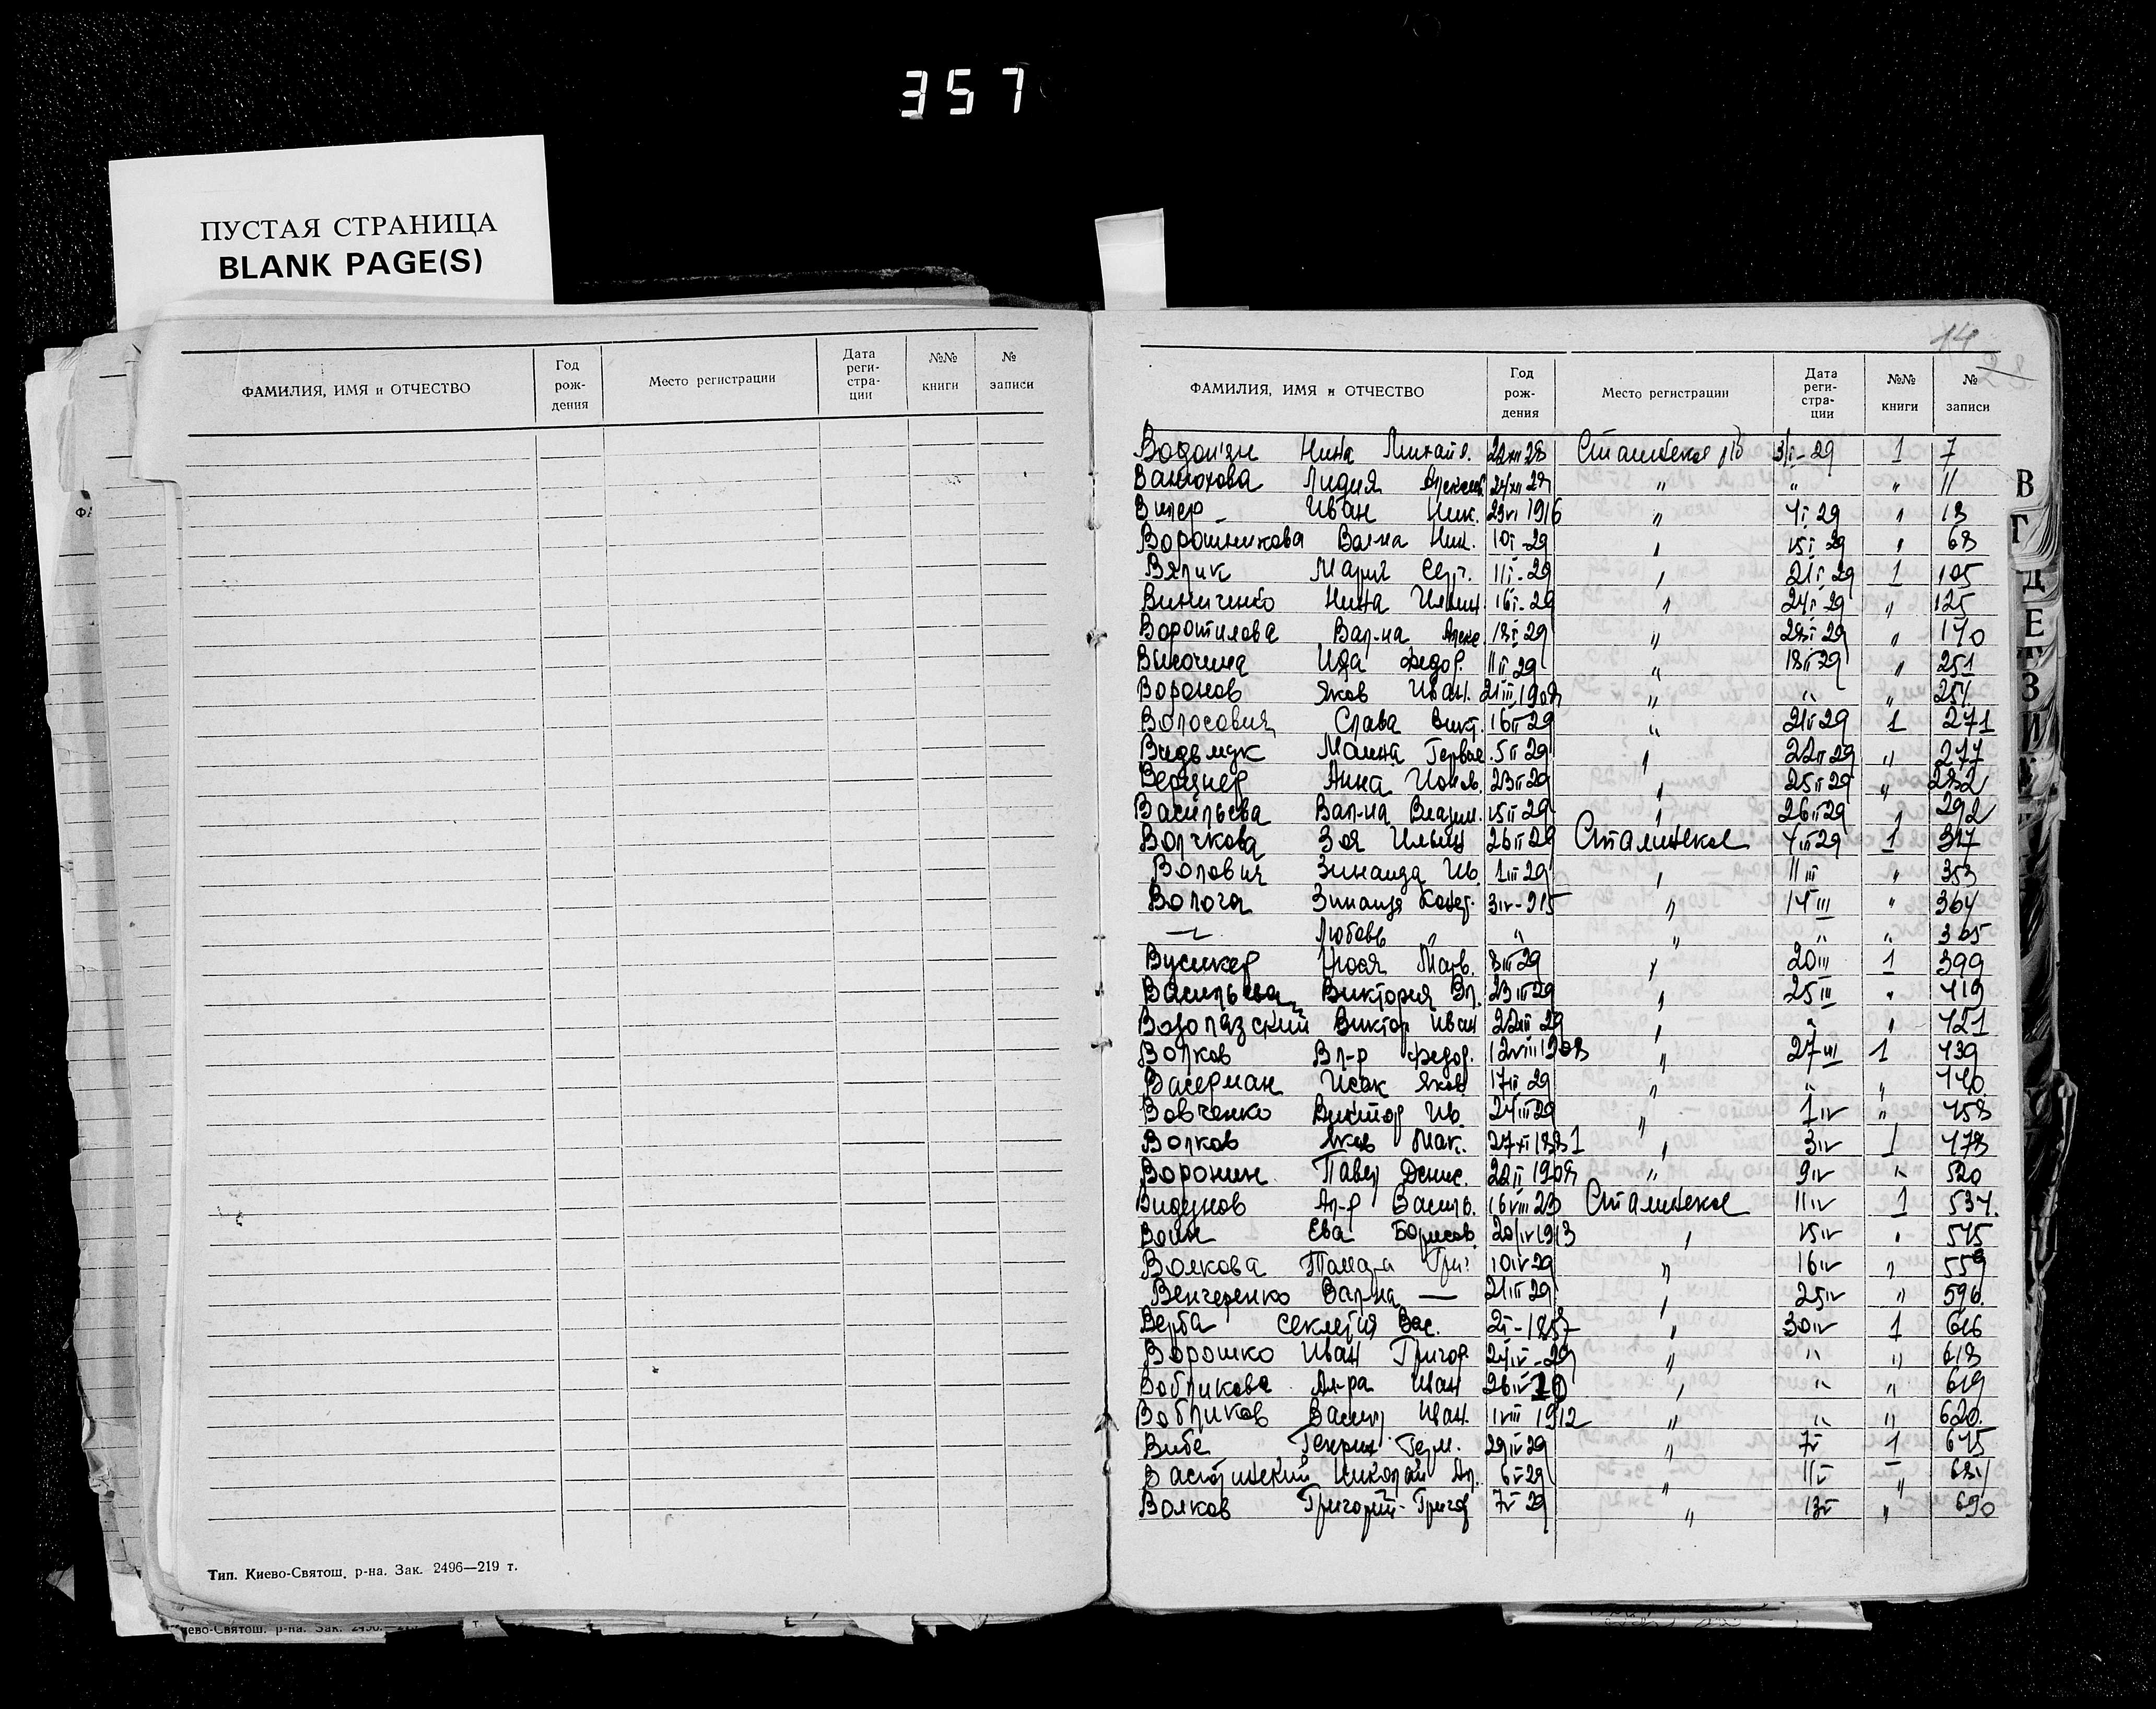 357
ПУСТАЯ СТРАНИЦА
BLANK PAGE(S)
ФАМИЛИЯ, ИМЯ и ОТЧЕСТВО Год рож- дения Место регистрации Дата реги- стра- ции №№ книги № записи
Тип. Киево-Святош. р-на. Зак. 2496—219 т.
14
28
ФАМИЛИЯ, ИМЯ и ОТЧЕСТВО Год рож- дения Место регистрации Дата реги- стра- ции №№ книги № записи
Нина Михайл. 22XII28 Сталинское 3/I-29 1 7
Ванюхова Лидия Алексеев. " " " 11
Иван Ник. 1916 " 4I29 " 18
Ворошникова Вал-на Ник. 10I-29 " 15I29 " 68
Вялик Мария Серг. 11I-29 " 21I29 1 105
Виниченко Нина 16I-29 " 24I29 " 125
Воротилова Вал-на Алекс. 18I29 " 28I29 " 170
Ида Федор. 11II29 " 18II29 " 251
Воронов Яков Иван. 21III1908 " " " 254
Волосовия Слава Викт. 16II29 " 21II29 1 271
5II29 " 22II29 " 277
Анна 23II29 " 25II29 " 282
Васильева Вал-на Владим. 15II29 " 26II29 " 292
Волчкова Зоя Ильин 26II29 Сталинское 4III29 1 317
Зинаида Ив. 1III29 " 11III " 353
Волога Зинаида " 14III " 364
Любовь " " " " " 365
Матв. 8III29 " 20III 1 399
Васильева Виктория Вл. 23III29 " 25III " 419
Водолазский Виктор Иван 22III29 " " " 421
Волков Вл-р Федор. 12VIII1908 " 27III 1 439
Васерман Исак Яков. 17III29 " " " 440
Вовченко Виктор Ив. 24III29 " 1IV " 458
Волков Яков Мак. 1881 " 3IV 1 478
Воронин Павел Денис. 22II1908 " 9IV " 520
Ал-р Василь. 16VIII23 Сталинское 11IV 1 534.
Ева Борисов. 20/IV1913 " 15IV " 545
Волкова Тамара Григ. 10IV29 " 16IV " 559
Венгеренко Вал-на — 21III29 " 25IV " 596.
Верба Секлетия Вас. 1857 " 30IV 1 616
Ворошко Иван Григор. 24IV-29 " " " 618
Вобликова Ал-ра Иван 26IV " " " 619
Вобликов Васил Иван. 1VIII1912 " " " 620.
Вибе Генрих Герм. 29IV29 " 7V 1 645
Николай Ал. 6V29 " 11V " 684
Волков Григорий Григор 7V29 " 13V " 690
В
Г
Д
Е
З
И